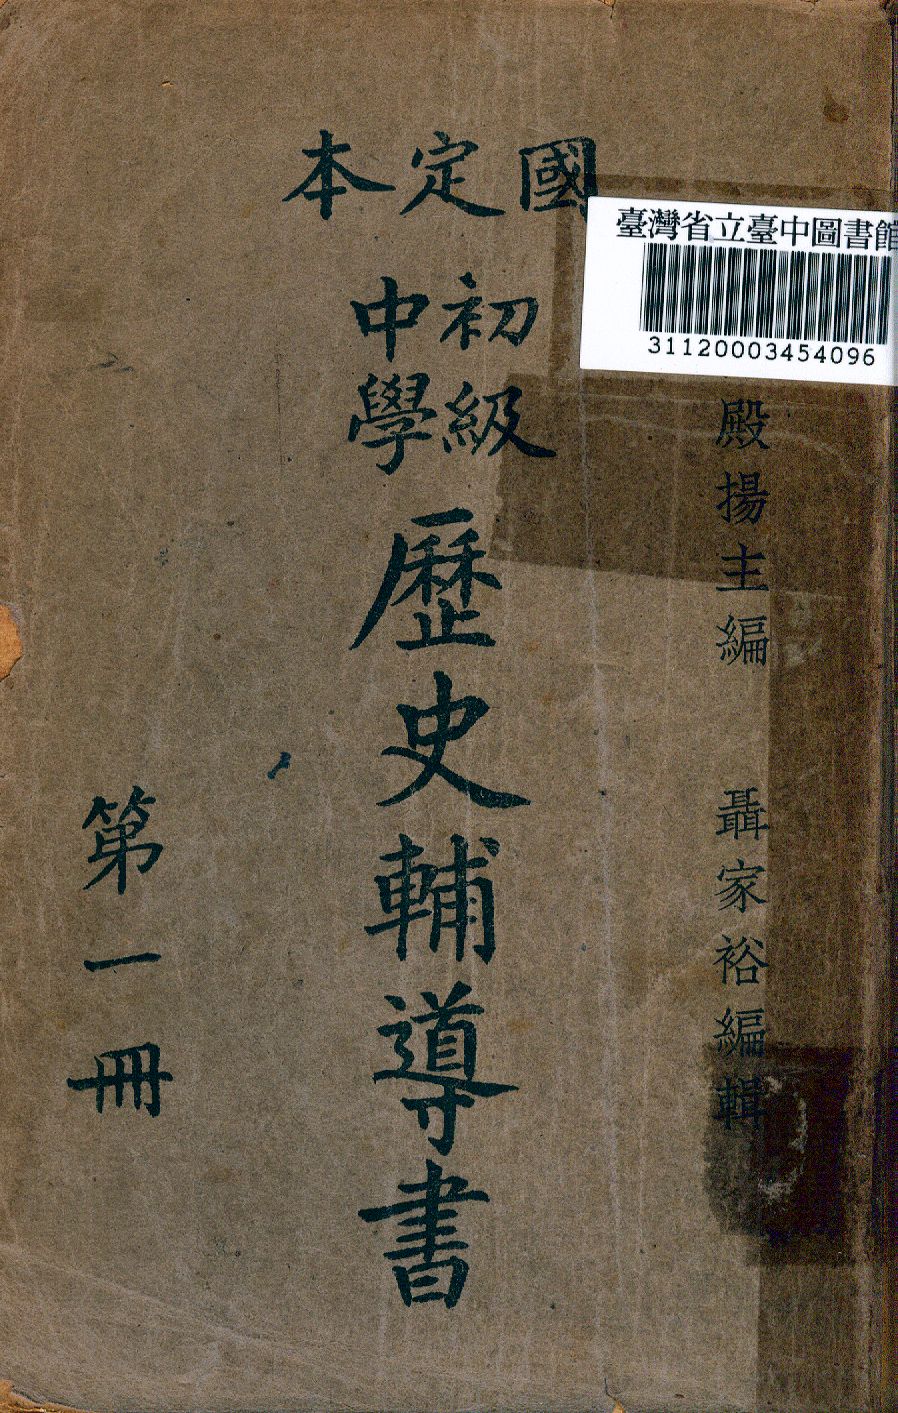 國定本
臺灣省立臺中圖書館
31120003454096
殿揚主編　聶家裕編輯
初級
中學
歷史輔導書
第一冊